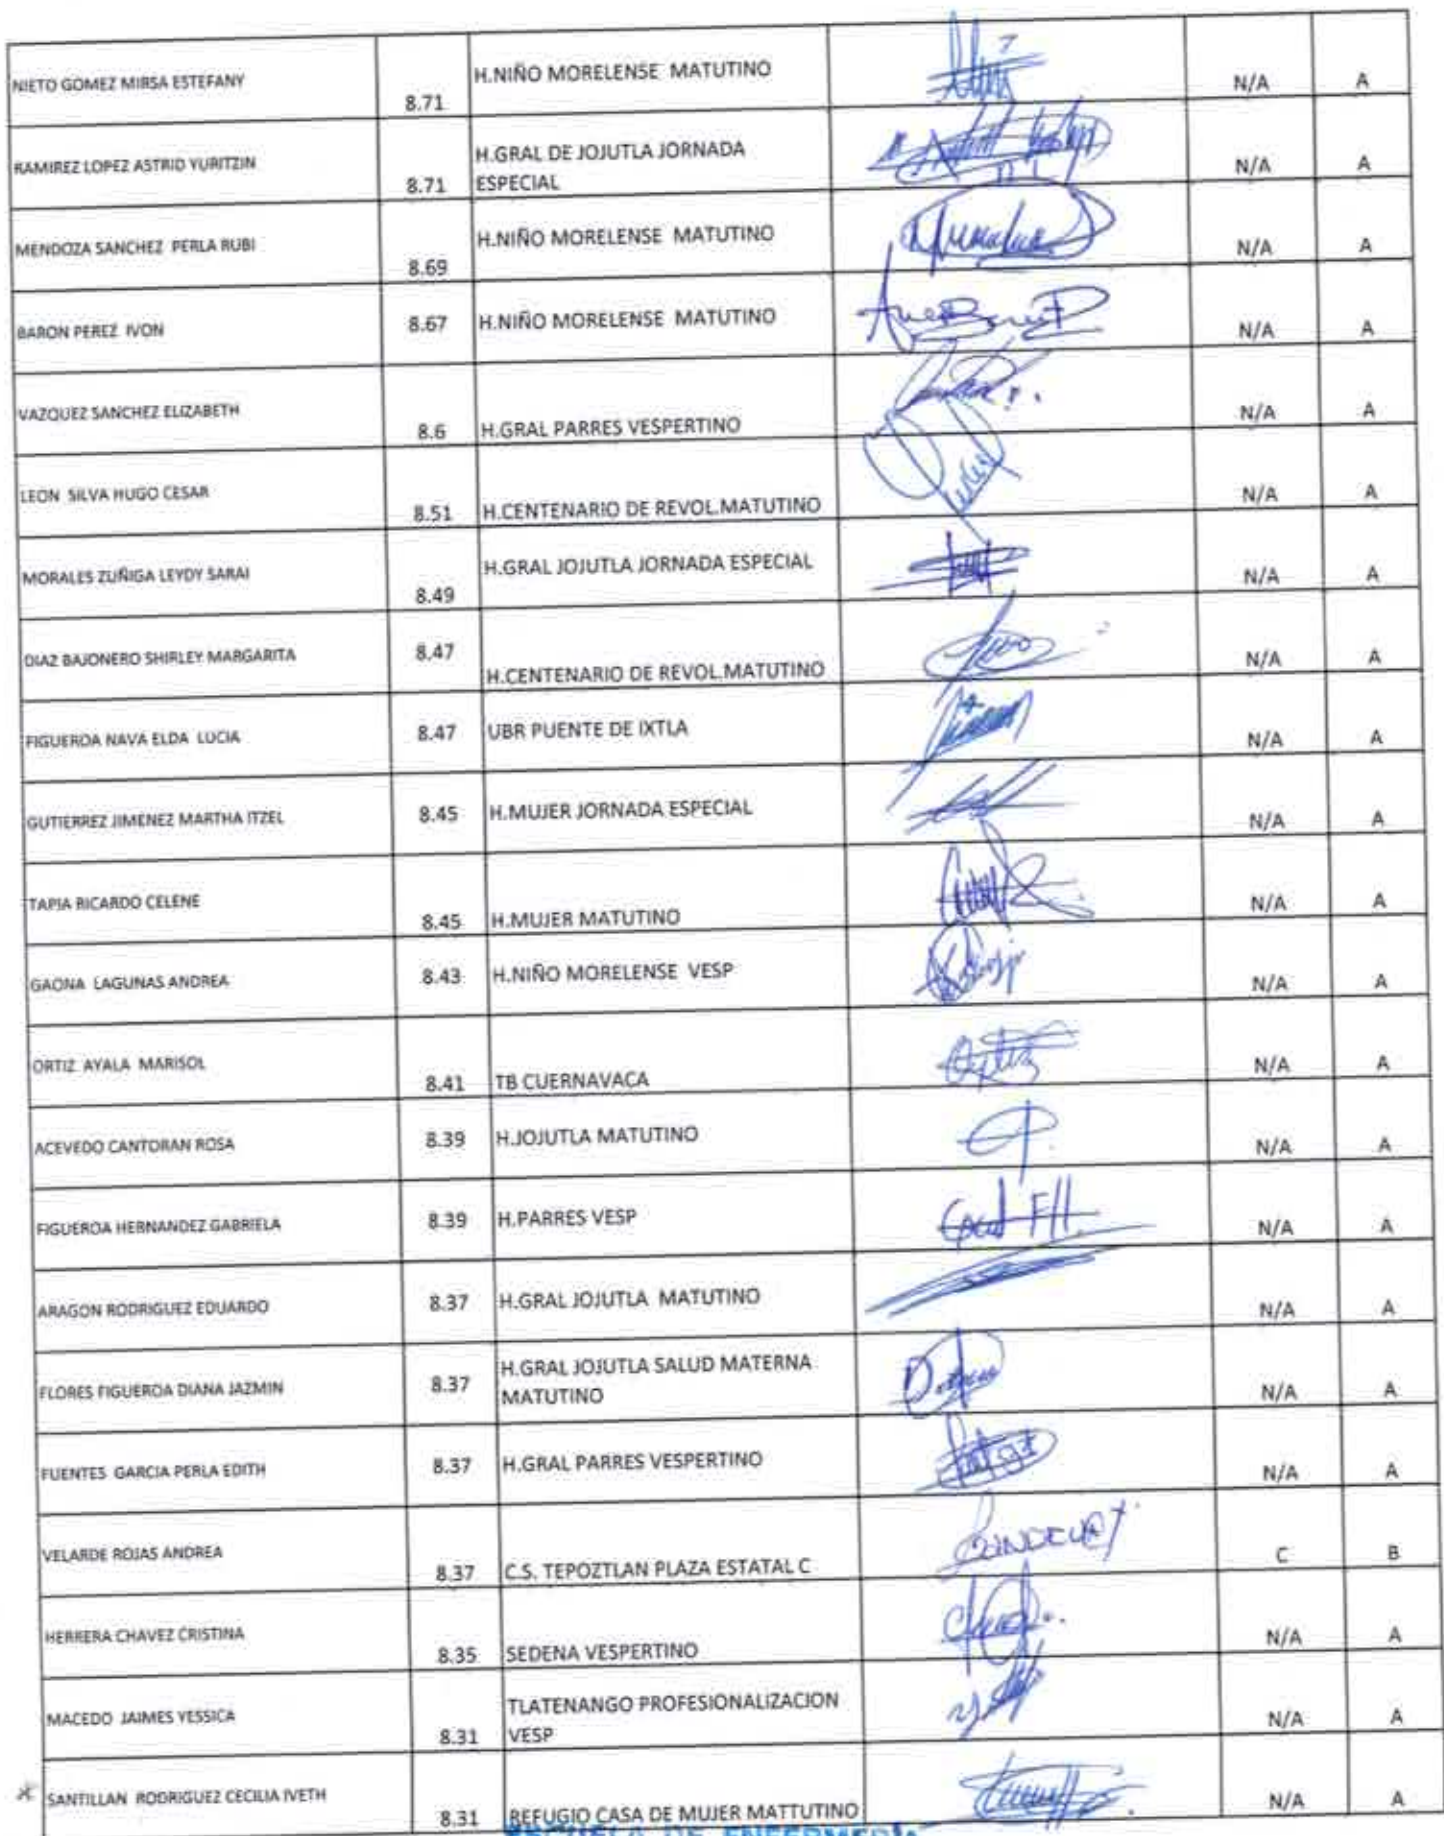 NIETO GOMEZ MIRSA ESTEFANY 8.71 H.NIÑO MORELENSE MATUTINO N/A A
RAMIREZ LOPEZ ASTRID YURITZIN 8.71 H.GRAL DE JOJUTLA JORNADA
ESPECIAL N/A A
MENDOZA SANCHEZ PERLA RUBI 8.69 H.NIÑO MORELENSE MATUTINO N/A A
BARON PEREZ IVON 8.67 H.NIÑO MORELENSE MATUTINO N/A A
VAZQUEZ SANCHEZ ELIZABETH 8.6 H.GRAL PARRES VESPERTINO N/A A
LEON SILVA HUGO CESAR 8.51 H.CENTENARIO DE REVOL.MATUTINO N/A A
MORALES ZUÑIGA LEYDY SARAI 8.49 H.GRAL JOJUTLA JORNADA ESPECIAL N/A A
DIAZ BAJONERO SHIRLEY MARGARITA 8.47 H.CENTENARIO DE REVOL.MATUTINO N/A A
FIGUEROA NAVA ELDA LUCIA 8.47 UBR PUENTE DE IXTLA N/A A
GUTIERREZ JIMENEZ MARTHA ITZEL 8.45 H.MUJER JORNADA ESPECIAL N/A A
TAPIA RICARDO CELENE 8.45 H.MUJER MATUTINO N/A A
GAONA LAGUNAS ANDREA 8.43 H.NIÑO MORELENSE VESP N/A A
ORTIZ AYALA MARISOL 8.41 TB CUERNAVACA N/A A
ACEVEDO CANTORAN ROSA 8.39 H.JOJUTLA MATUTINO N/A A
FIGUEROA HERNANDEZ GABRIELA 8.39 H.PARRES VESP N/A A
ARAGON RODRIGUEZ EDUARDO 8.37 H.GRAL JOJUTLA MATUTINO N/A A
FLORES FIGUEROA DIANA JAZMIN 8.37 H.GRAL JOJUTLA SALUD MATERNA
MATUTINO N/A A
FUENTES GARCIA PERLA EDITH 8.37 H.GRAL PARRES VESPERTINO N/A A
VELARDE ROJAS ANDREA 8.37 C.S. TEPOZTLAN PLAZA ESTATAL C C B
HERRERA CHAVEZ CRISTINA 8.35 SEDENA VESPERTINO N/A A
MACEDO JAIMES YESSICA 8.31 TLATENANGO PROFESIONALIZACION
VESP N/A A
SANTILLAN RODRIGUEZ CECILIA IVETH 8.31 REFUGIO CASA DE MUJER MATTUTINO N/A A
ESCUELA DE ENFERMERÍA